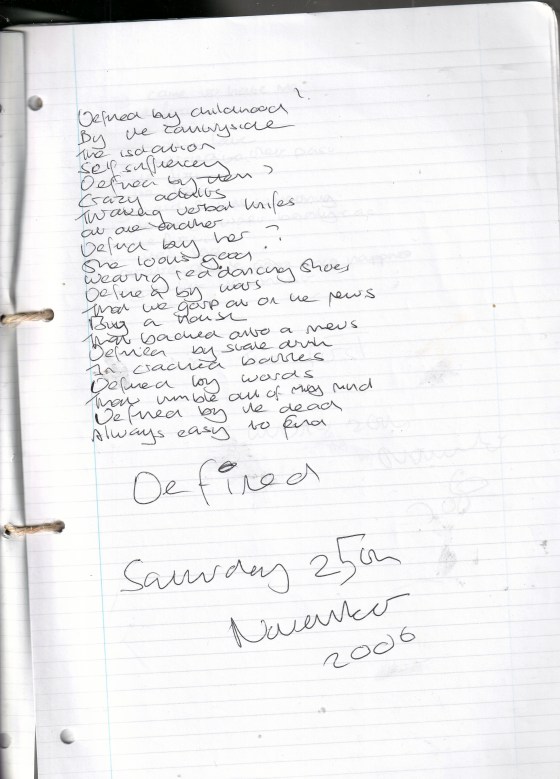 Defined by childhood ?
By the countryside
The isolation
Self sufficency
Defined by them ?
Crazy adults
Throwing verbal knifes
at one another
Defined by her ?
She looks good
Wearing red dancing shoes
Defined by wars
That we gasp at on the news
Buy a house
That backed onto a mews
Defined by stale drink
In cracked bottles
Defined by words
That tumble out of my mind
Defined by the dead
Always easy to find
Defined
Saturday 25th
November
2006